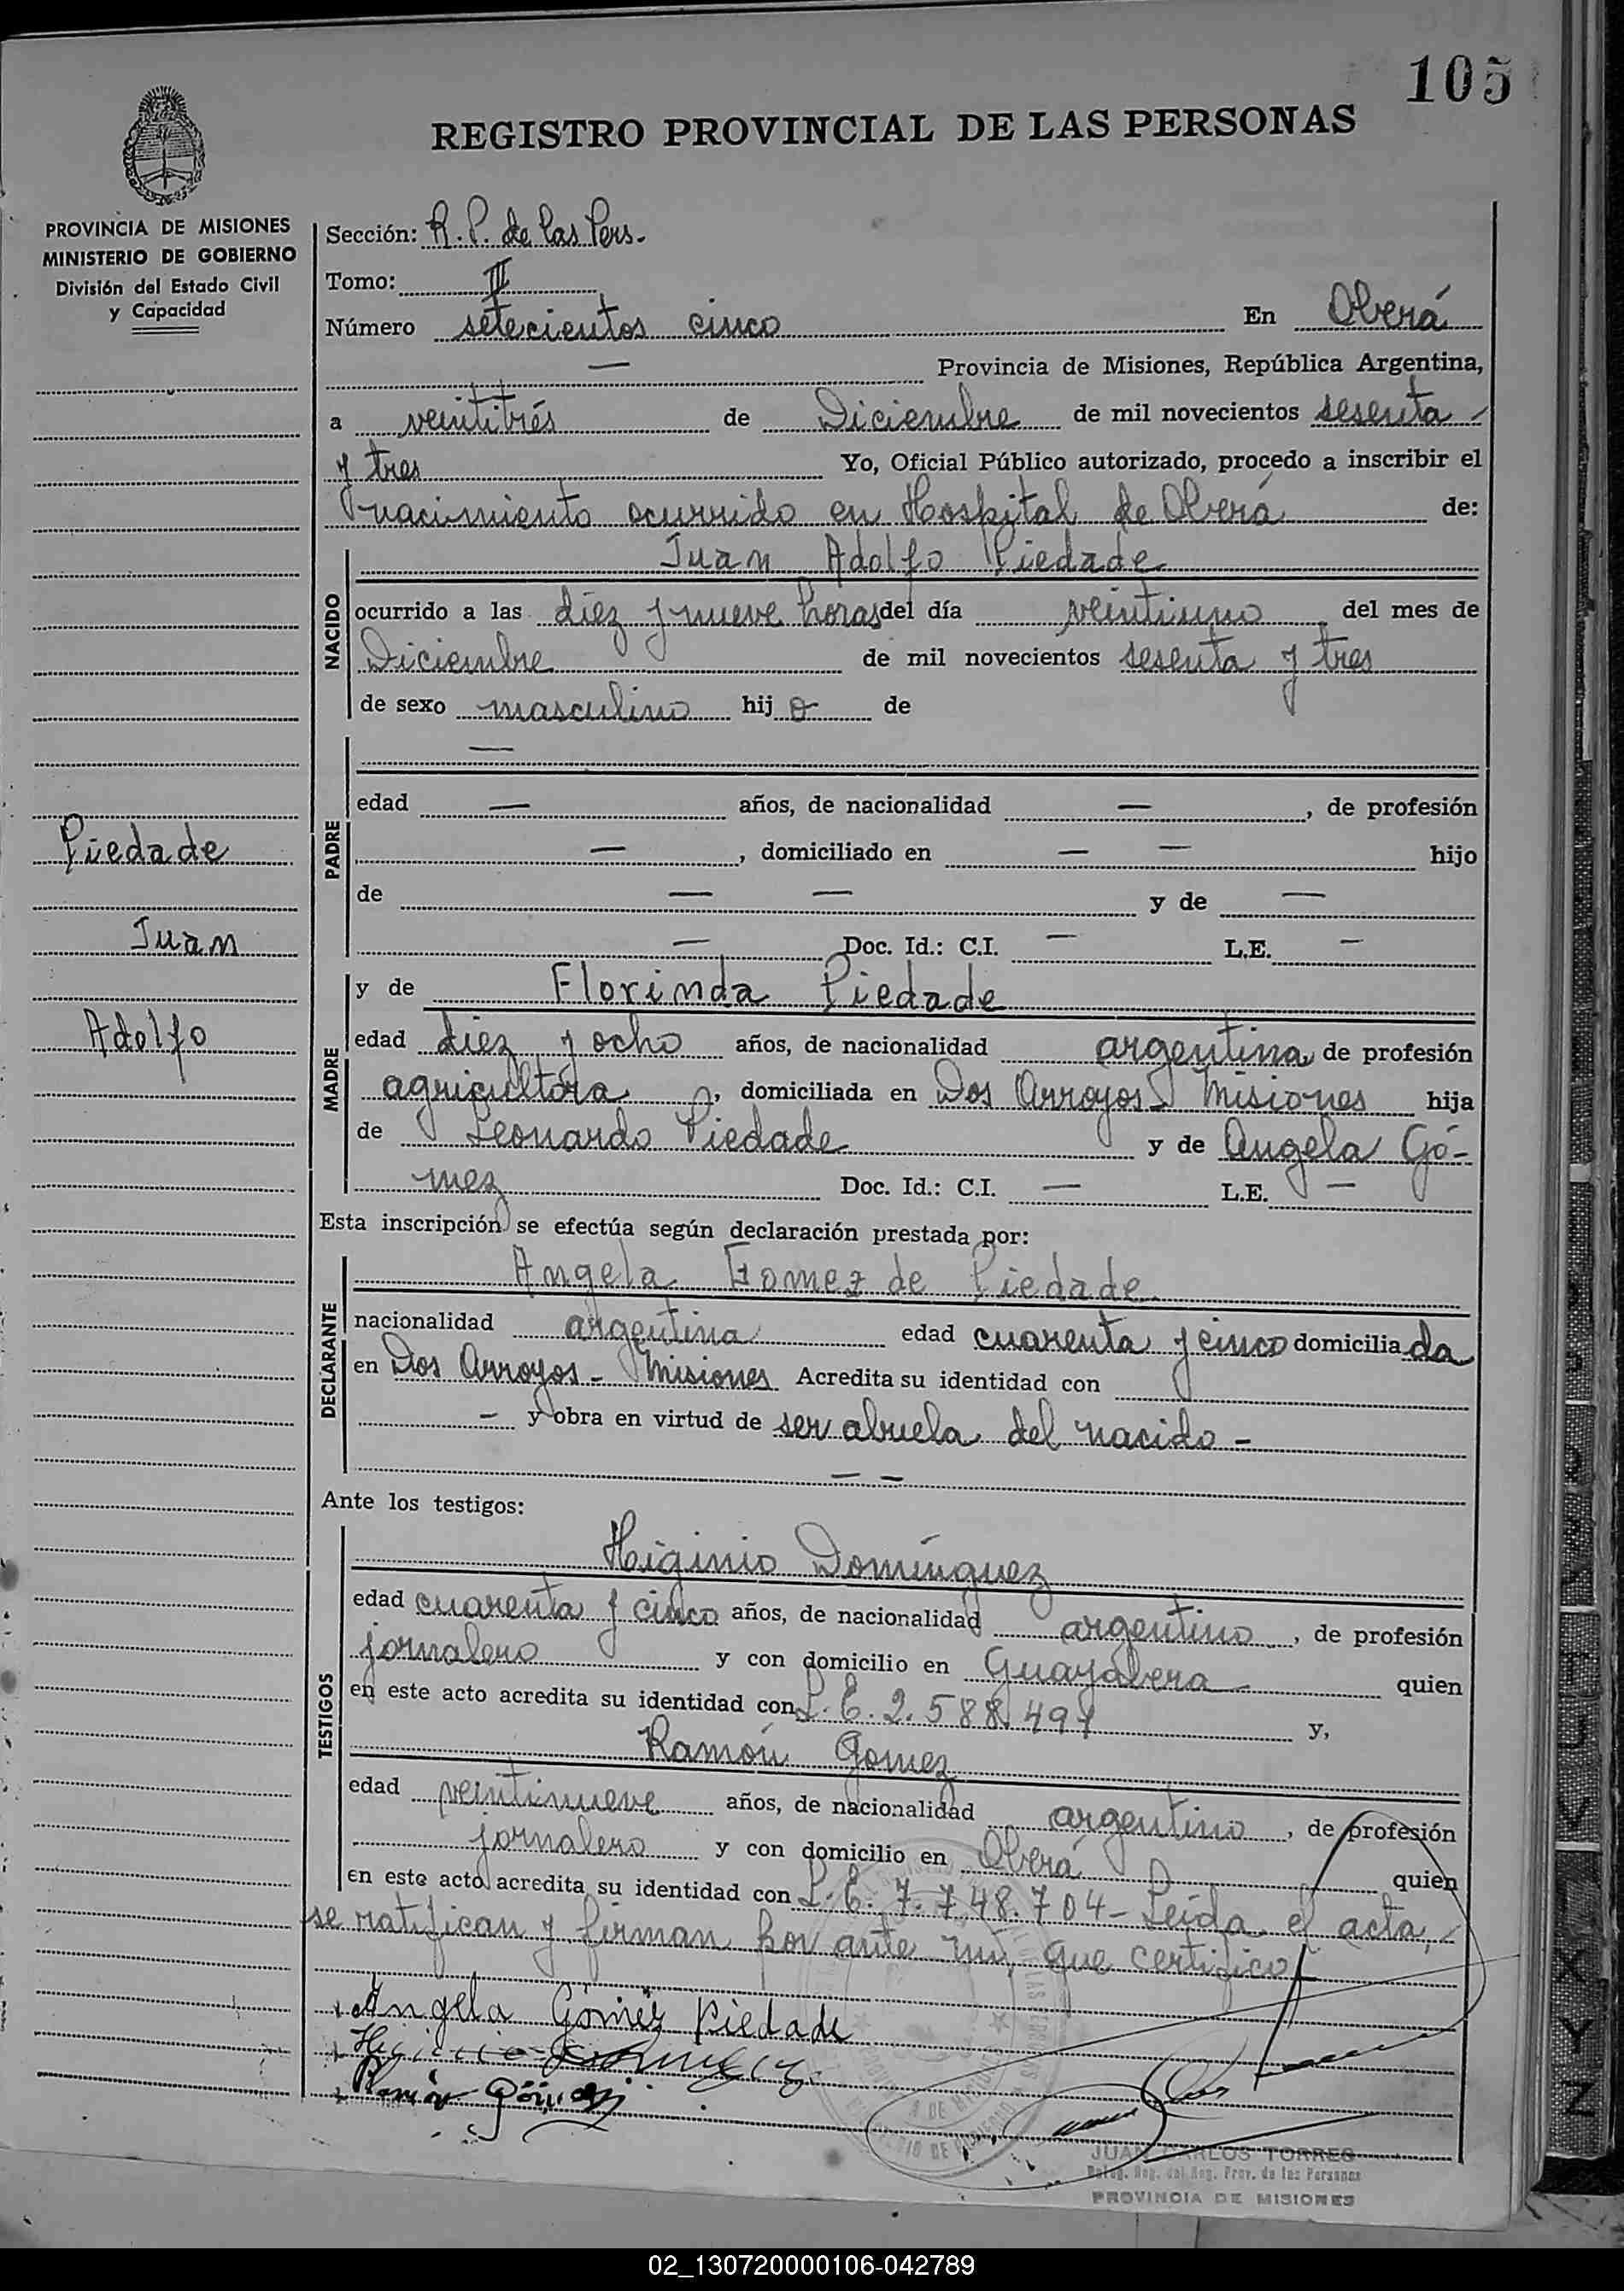 105
REGISTRO PROVINCIAL DE LAS PERSONAS
PROVINCIA DE MISIONES
MINISTERIO DE GOBIERNO
División del Estado Civil
y Capacidad
Sección: R. P. de las Pers.
Tomo: III
Número setecientos cinco En Oberá
— Provincia de Misiones, República Argentina,
a veintitrés de Diciembre de mil novecientos sesenta
y tres Yo, Oficial Público autorizado, procedo a inscribir el
nacimiento ocurrido en Hospital de Oberá de:
Juan Adolfo Piedade
NACIDO
ocurrido a las diez y nueve horas del día veintiuno del mes de
Diciembre de mil novecientos sesenta y tres
de sexo masculino hijo de
—
PADRE
edad — años, de nacionalidad —, de profesión
—, domiciliado en — — hijo
de — — y de —
— Doc. Id.: C.I. — L.E. —
Piedade
Juan
Adolfo
MADRE
y de Florinda Piedade
edad diez y ocho años, de nacionalidad argentina de profesión
agricultora, domiciliada en Dos Arroyos - Misiones hija
de Leonardo Piedade y de Angela Gó-
mez Doc. Id.: C.I. — L.E. —
Esta inscripción se efectúa según declaración prestada por:
Angela Gomez de Piedade
DECLARANTE
nacionalidad argentina edad cuarenta y cinco domiciliada
en Dos Arroyos - Misiones Acredita su identidad con
— y obra en virtud de ser abuela del nacido -
— —
Ante los testigos:
TESTIGOS
Higinio Domínguez
edad cuarenta y cinco años, de nacionalidad argentino, de profesión
jornalero y con domicilio en Guayabera quien
en este acto acredita su identidad con L. E. 2.588.491 y,
Ramón Gomez
edad veintinueve años, de nacionalidad argentino, de profesión
jornalero y con domicilio en Oberá quien
en este acto acredita su identidad con L. E. 7.748.704 - Leída el acta,
se ratifican y firman por ante mí, que certifico
Angela Gómez Piedade
Ramón Gómez
JUAN CARLOS TORRES
Deleg. Reg. del Reg. Prov. de las Personas
PROVINCIA DE MISIONES
X
Y
Z
02_130720000106-042789